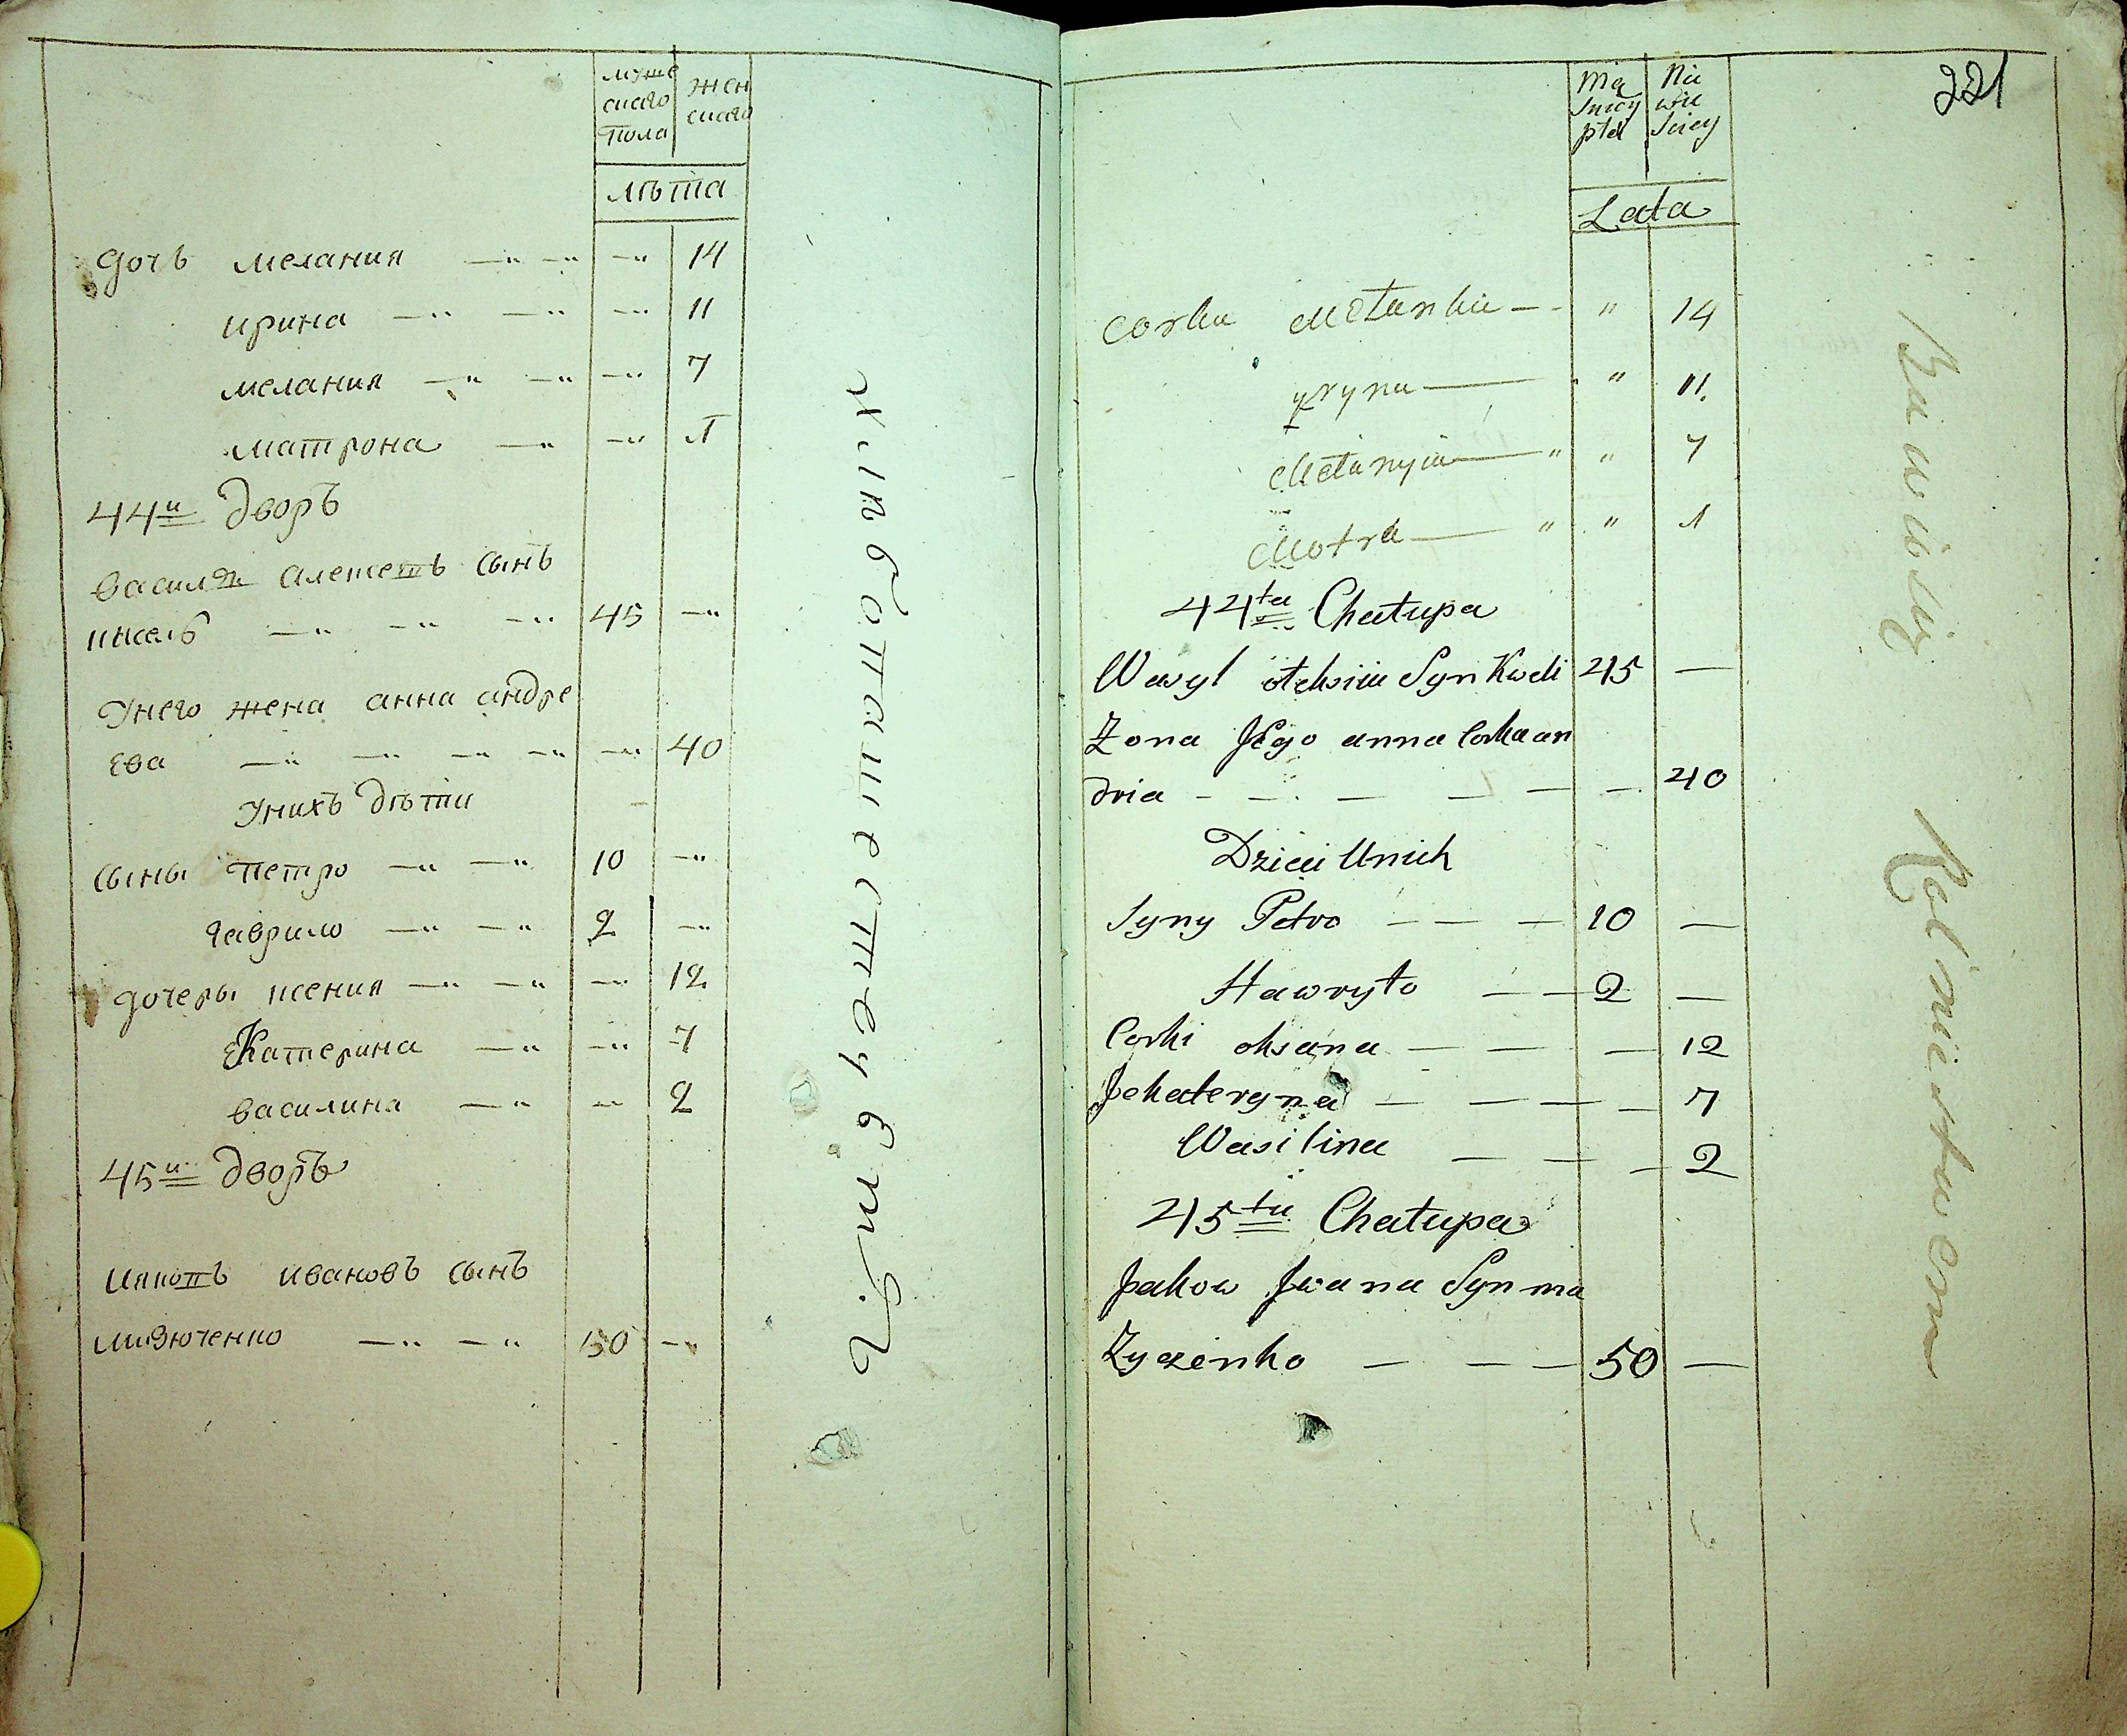 муже
скаго
пола
жен
скаго
лѣта
дочь мелания —" —" —" 14
ирина —" —" —" 11
мелания —" —" —" 7
матрона —" —" 1
44й дворъ
василь алексеевъ сынъ
45 —"
Унего жена анна андре
ева —" —" —" —" —" 40
Унихъ дѣти
сыны петро —" —" 10 —"
гаврило —" —" 2 —"
дочеры ксения —" —" —" 12
Катерина —" —" 7
василина —" —" 2
45й дворъ
ияковъ ивановъ сынъ
мизюченко —" —" 50 —"
хлѣбопашествуетъ
221
Mę
skiey
płci
Nie
wie
sciey
Lata
corka Mełanka — - " 14
yryna — " 11.
Mełanyia — " " 7
Motra — " " 1
44ta Chałupa
Wasyl ołeksiia Syn 45 —
Zona Jego anna Corka an
dria - — — — — — 40
Dzieci Unich
Syny Petro — — — 10 —
Hawryło — — 2 —
Corki oksana — — — 12
Jekateryna — — — — 7
Wasilina — — — 2
45ta Chałupa
Jakow Jwana Syn mu
Zyczenko — — — 50 —